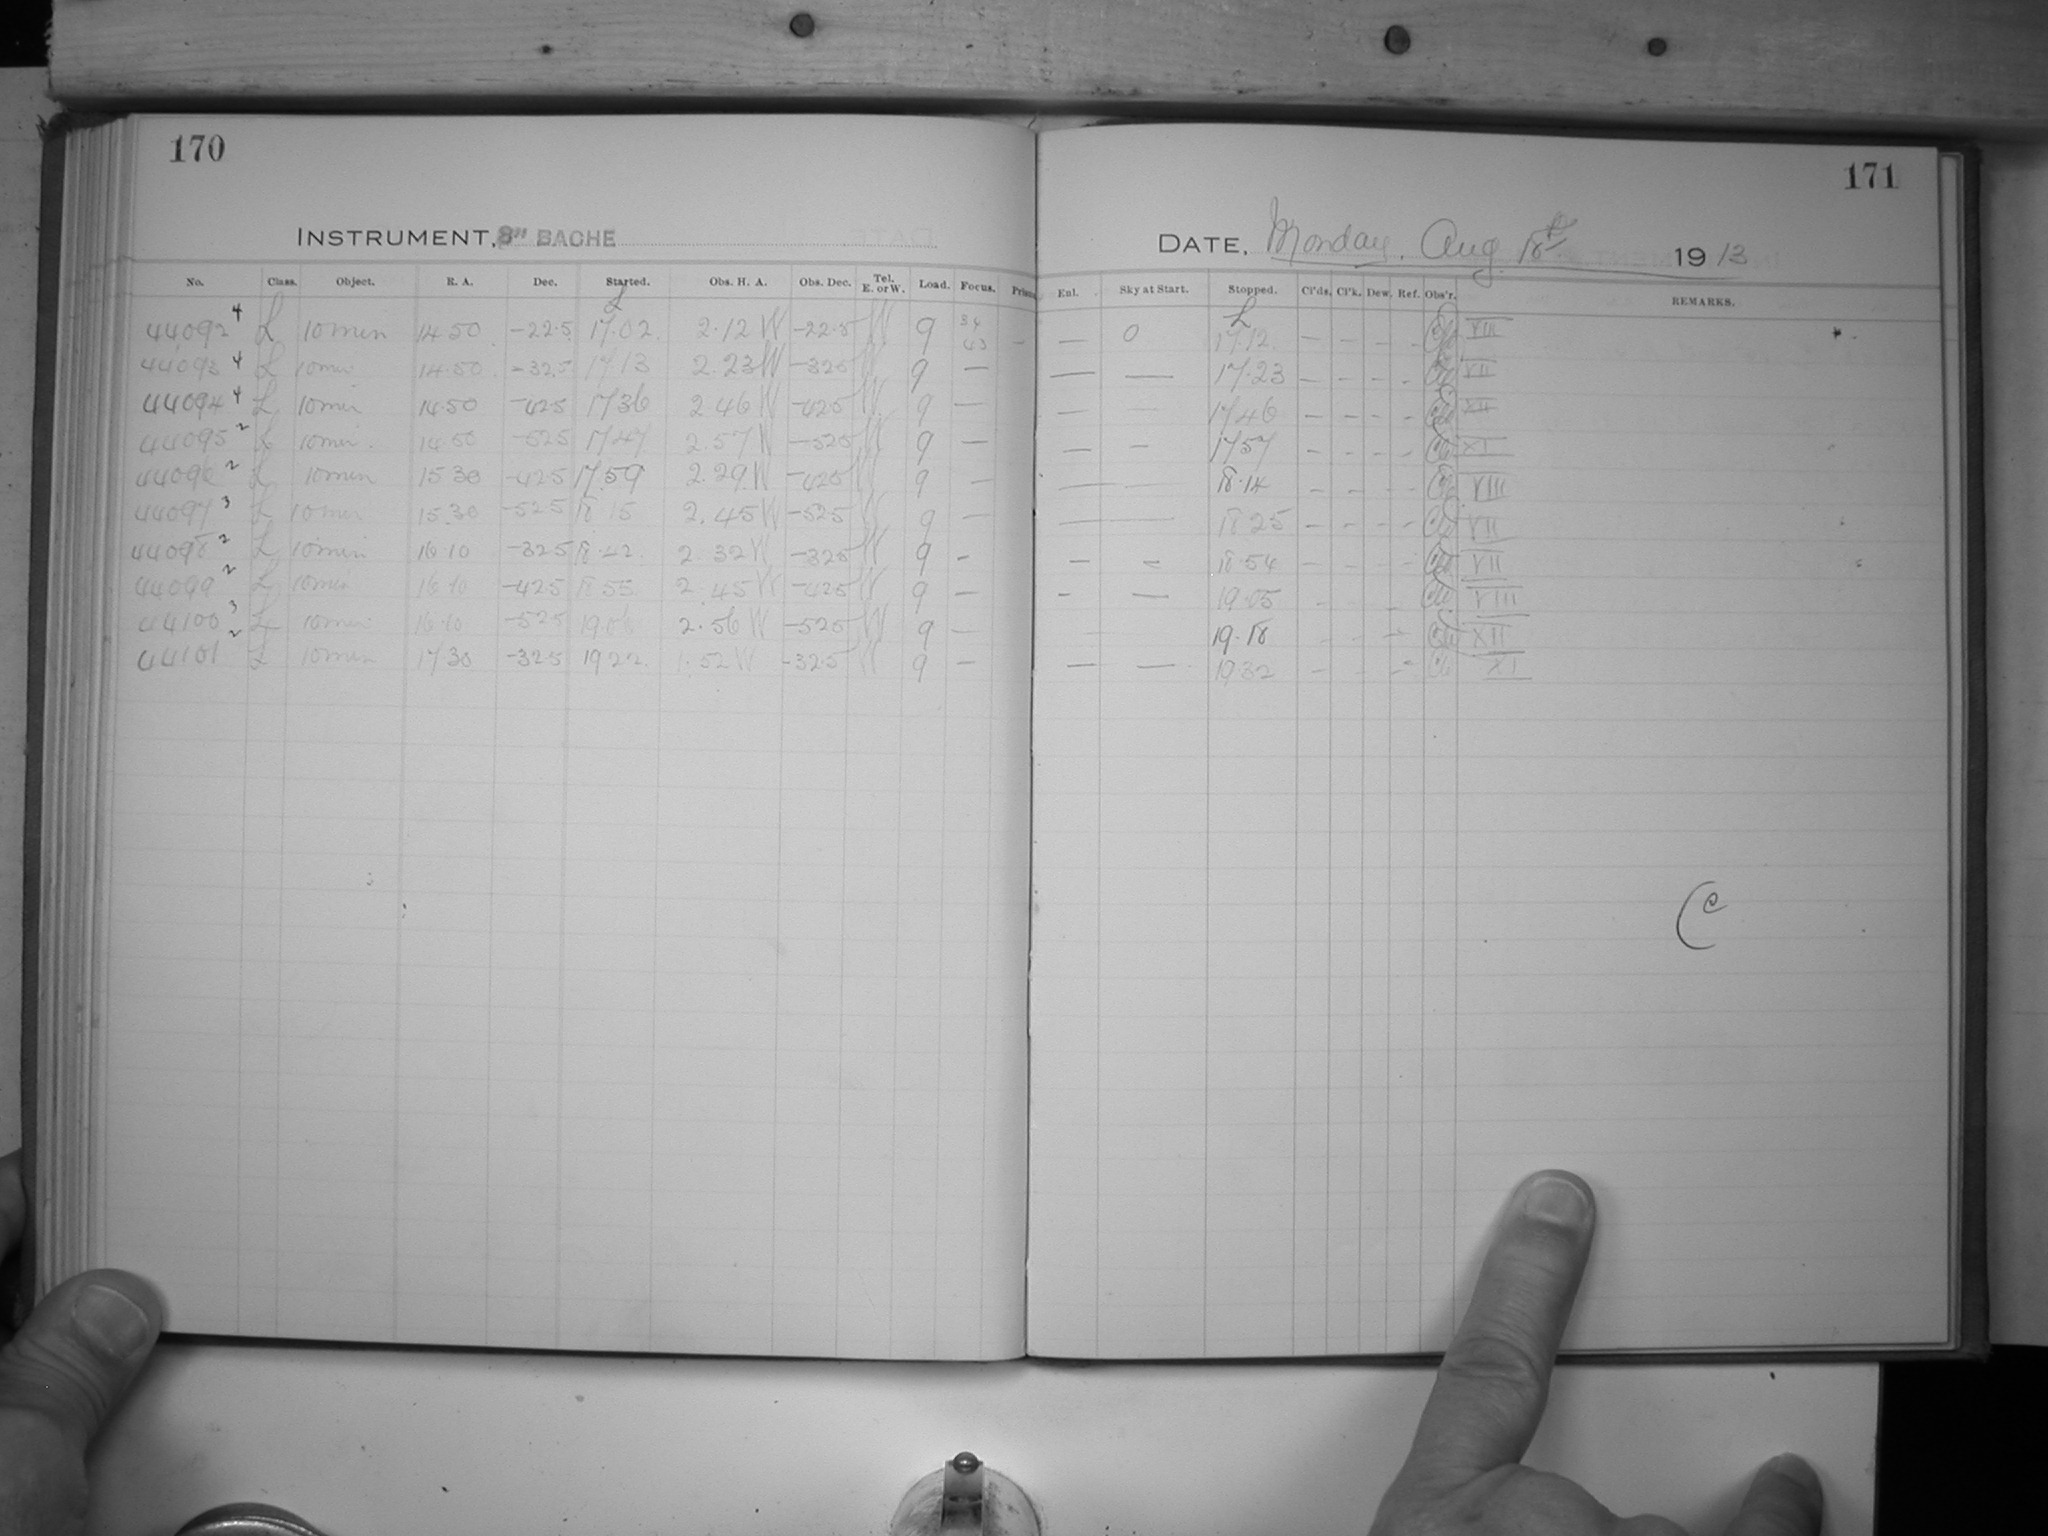 170
INSTRUMENT, 8" BACHE
No. Class. Object. R. A. Dec. Started. Obs. H. A. Obs. Dec. Tel. E. or W. Load. Focus.
L
44092 4 L 10 min 14.50 -22.5 17.02 2.12 W -22.5 W 9 34 43 -
44093 4 L 10 min 14.50 -32.5 17 13 2.23 W -325 W 9 -
44094 4 L 10 min 14.50 -425 1736 2 46 W -425 W 9 -
44095 2 L 10 min. 14.50 -525 1747 2.57 W -525 W 9 -
44096 2 L 10 min 15.30 -425 17.59 2.29 W -425 W 9 -
44097 3 L 10 min 15.30 -525 18 15 2.45 W -525 W 9 -
44098 2 L 10 min 16.10 -325 18.42 2.32 W -325 W 9 -
44099 2 L 10 min 16.10 -425 18 55 2.45 W -425 W 9 -
44100 3 L 10 min 16.10 -525 1906 2.56 W -525 W 9 -
44101 2 L 10 min 17.30 -325 1922 1.52 W -325 W 9 -
171
DATE, Monday. Aug 18th 1913
Enl. Sky at Start. Stopped. Cl'ds. Cl'k. Dew. Ref. Obs'r. REMARKS.
L
- 0 17.12 - - - - VIII
- - 17.23 - - - - VII
- - 1746 - - - - XII
- - 1757 - - - - XI
- - 18.14 - - - - VIII
- - 18 25 - - - - VII
- - 18.54 - - - - VII
- - 19.05 - VIII
19.18 - - - - XII
- - 1932 - - - - XI